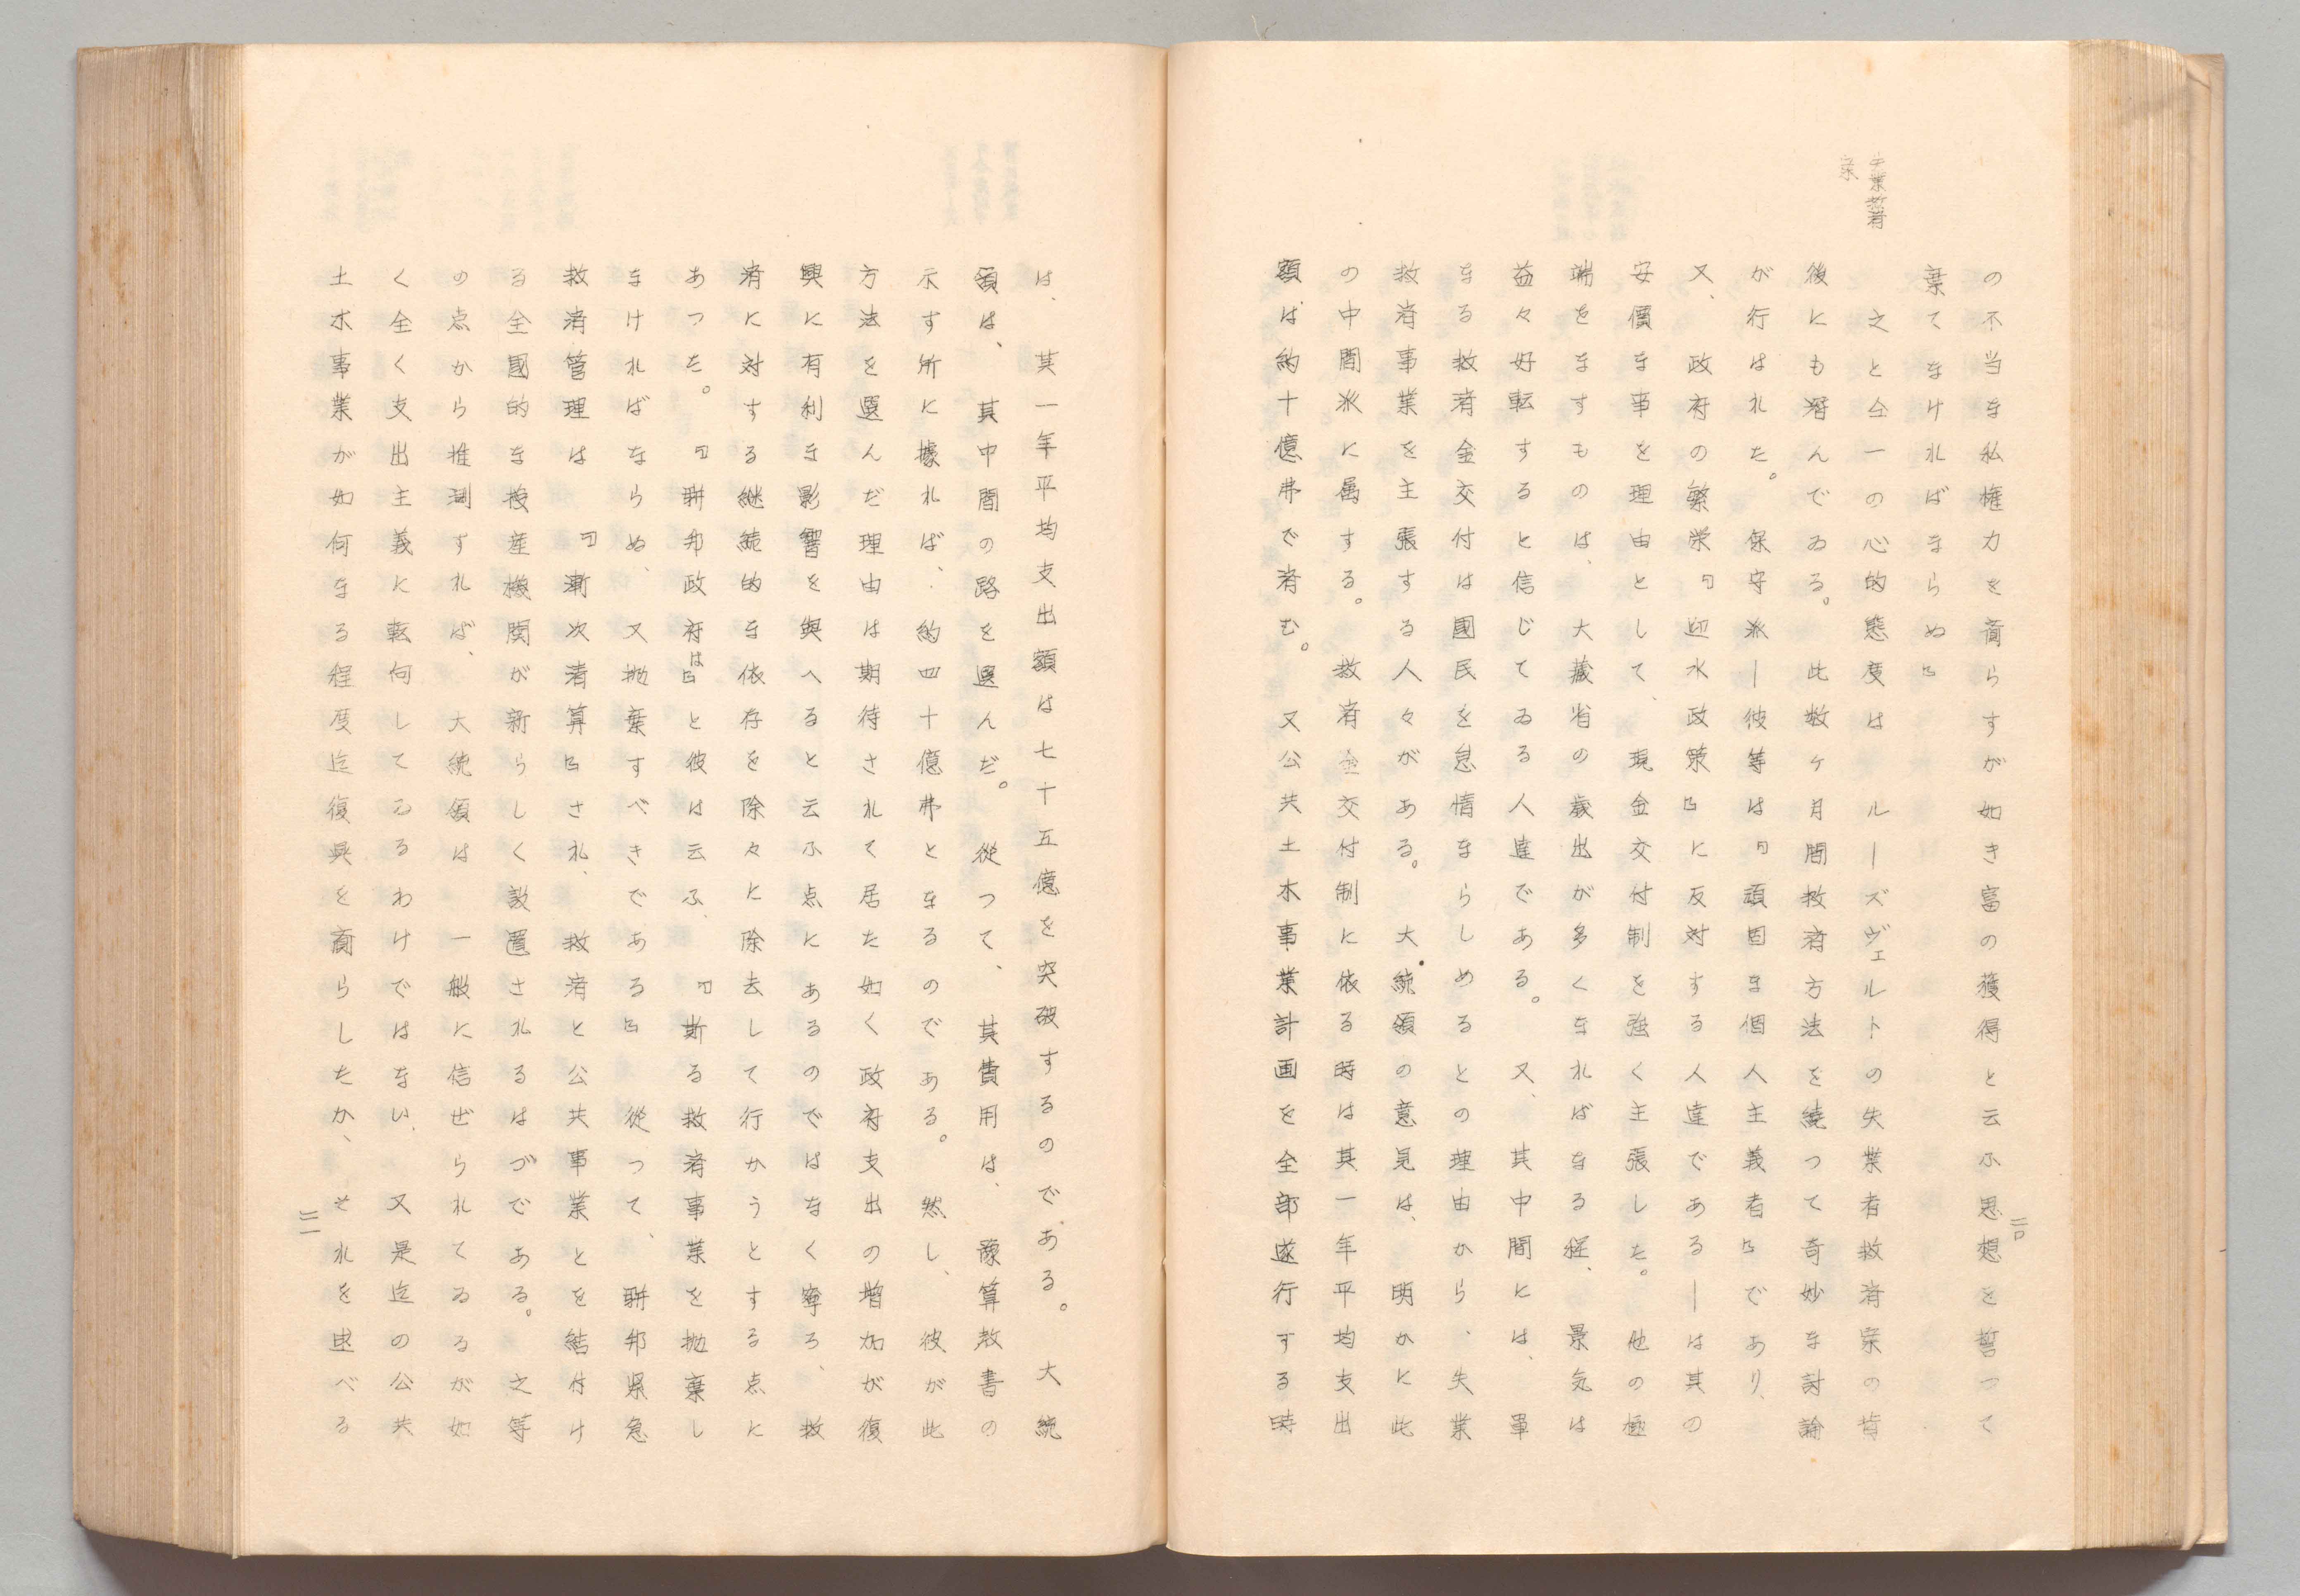 二〇
失業救済
案
の不当な私権力を齎らすが如き富の獲得と云ふ思想を誓つて
棄てなければならぬ』
之と仝一の心的態度はルーズヴェルトの失業者救済案の背
後にも潜んでゐる。此数ヶ月間救済方法を繞つて奇妙な討論
が行はれた。保守派ー彼等は『頑固な個人主義者』であり、
又、政府の繁栄『迎水政策』に反対する人達であるーは其の
安價な事を理由として、現金交付制を強く主張した。他の極
端をなすものは、大蔵省の歳出が多くなればなる程、景気は
益々好転すると信じてゐる人達である。又、其中間には、單
なる救済金交付は國民を怠惰ならしめるとの理由から、失業
救済事業を主張する人々がある。大統領の意見は、明かに此
の中間派に属する。救済金交付制に依る時は其一年平均支出
額は約十億弗で済む。又公共土木事業計画を全部遂行する時
は、其一年平均支出額は七十五億を突破するのである。大統
領は、其中間の路を選んだ。従つて、其費用は、豫算教書の
示す所に據れば、約四十億弗となるのである。然し、彼が此
方法を選んだ理由は期待されて居た如く政府支出の増加が復
興に有利な影響を與へると云ふ点にあるのではなく寧ろ、救
済に対する継続的な依存を除々に除去して行かうとする点に
あつた。『聯邦政府は』と彼は云ふ、『斯る救済事業を抛棄し
なければならぬ、又抛棄すべきである』従つて、聯邦緊急
救済管理は『漸次清算』され、救済と公共事業とを結付け
る全國的な授産機関が新らしく設置されるはづである。之等
の点から推測すれば、大統領は一般に信ぜられてゐるが如
く全く支出主義に転向してゐるわけではない、又是迄の公共
土木事業が如何なる程度迄復興を齎らしたか、それを述べる
二一